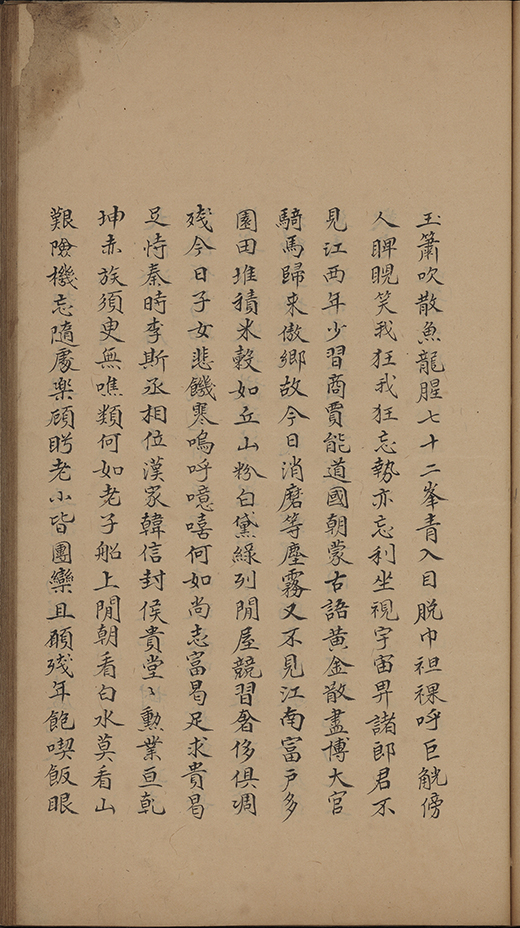 玉簫吹散魚龍腥七十二峯青入目脫巾袒裸呼巨觥傍
人睥睨笑我狂我狂忘勢亦忘利坐視宇宙畀諸郎君不
見江西年少習商賈能道國朝蒙古語黃金散盡博大官
騎馬歸来傲鄉故今日消磨等塵霧又不見江南富戶多
園田堆積米穀如丘山粉白黛綠列閒屋競習奢侈俱凋
殘今日子女悲饑寒嗚呼噫嘻何如尚志富曷足求貴曷
足恃秦時李斯丞相位漢家韓信封侯貴堂〻勲業亘乾
坤赤族須臾無噍類何如老子船上閒朝看白水莫看山
艱險機忘隨處樂顧盻老小皆團欒且願殘年飽喫飯眼